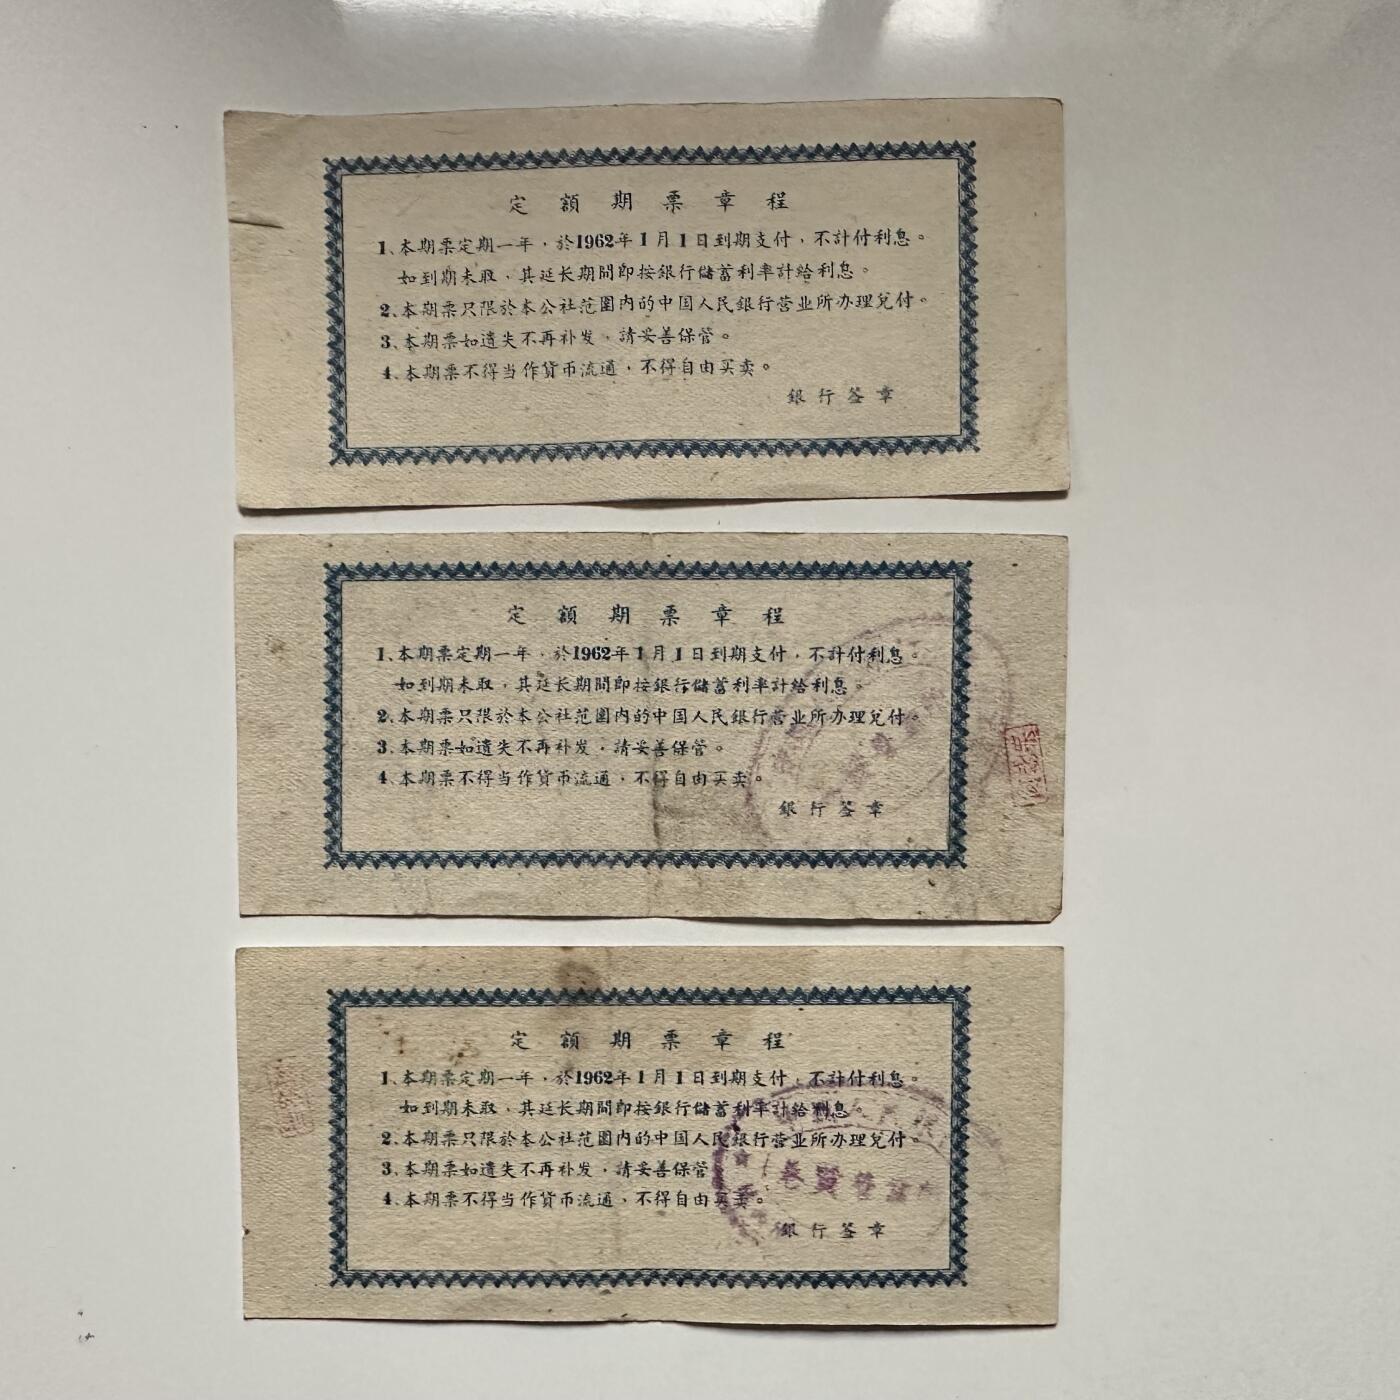 定額期票章程
1、本期票定期一年，於1962年1月1日到期支付，不計付利息。
如到期未取，其延长期間即按銀行儲蓄利率計給利息。
2、本期票只限於本公社范圍内的中国人民銀行营业所办理兌付。
3、本期票如遺失不再补发，請妥善保管。
4、本期票不得当作貨币流通，不得自由买卖。
銀行签章
定額期票章程
1、本期票定期一年，於1962年1月1日到期支付，不計付利息。
如到期未取，其延长期間即按銀行儲蓄利率計給利息。
2、本期票只限於本公社范圍内的中国人民銀行营业所办理兌付。
3、本期票如遺失不再补发，請妥善保管。
4、本期票不得当作貨币流通，不得自由买卖。
銀行签章
定額期票章程
1、本期票定期一年，於1962年1月1日到期支付，不計付利息。
如到期未取，其延长期間即按銀行儲蓄利率計給利息
2、本期票只限於本公社范圍内的中国人民銀行营业所办理兌付。
3、本期票如遺失不再补发，請妥善保管
4、本期票不得当作貨币流通，不得自由买卖。
銀行签章